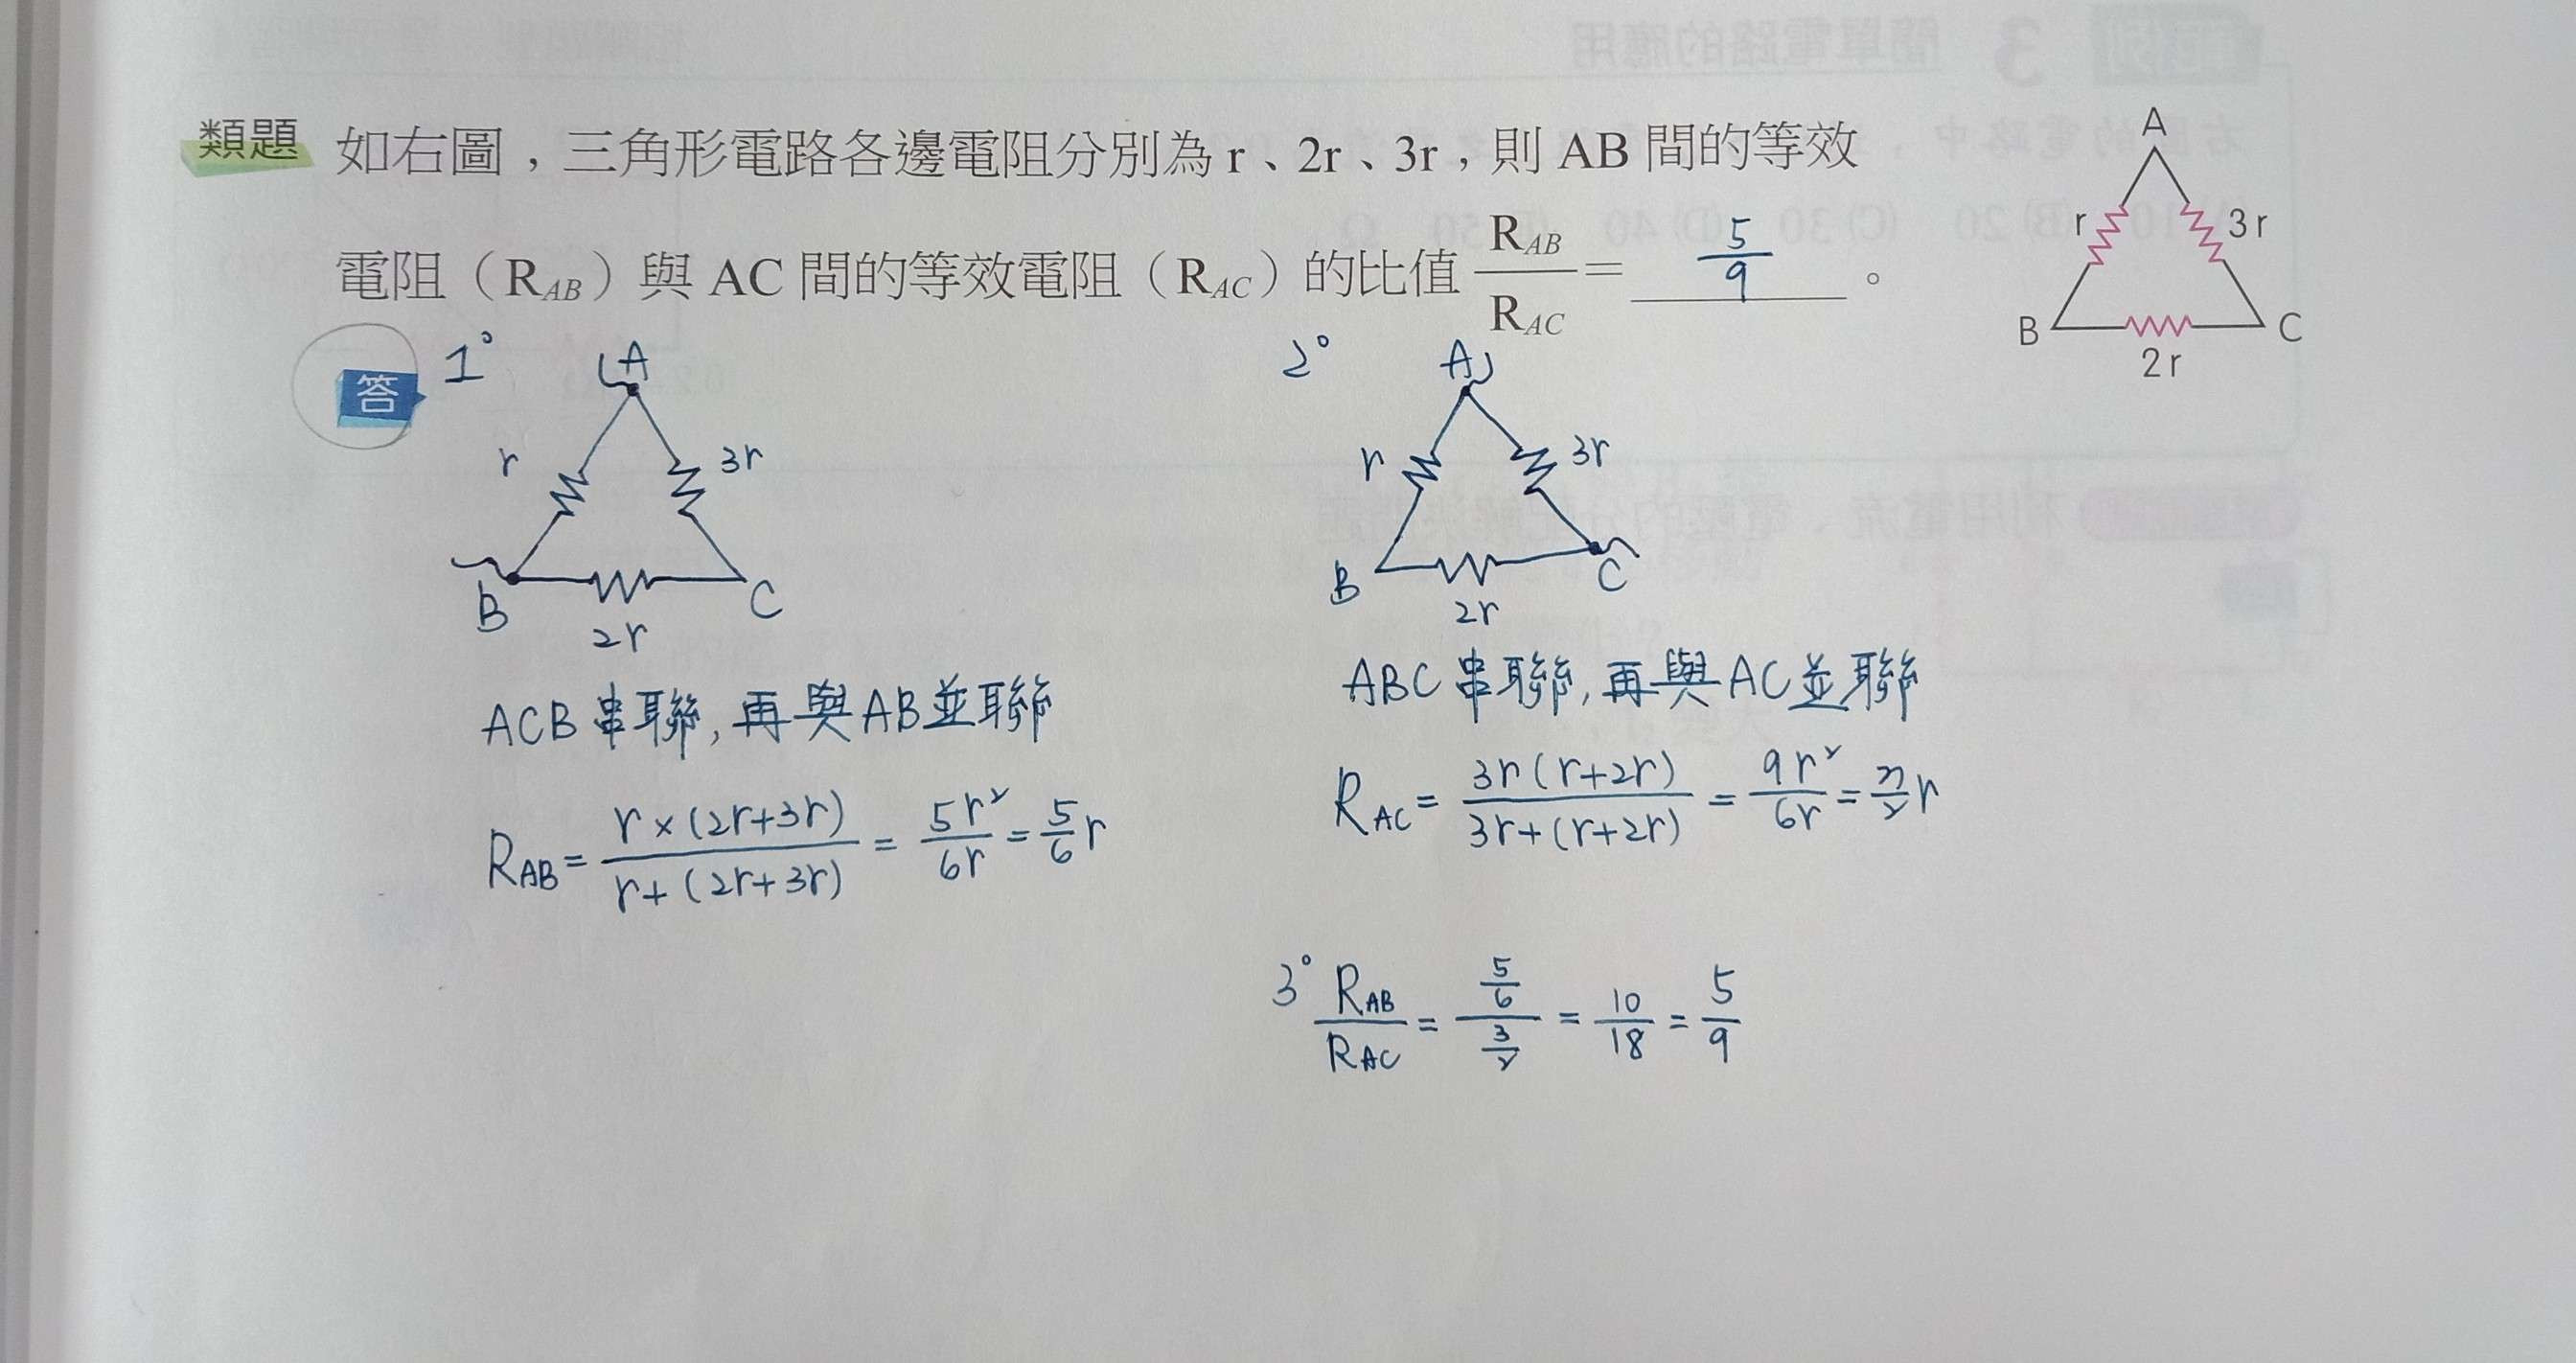 類題 如右圖，三角形電路各邊電阻分別為 r、2r、3r，則 AB 間的等效
電阻（R_AB）與 AC 間的等效電阻（R_AC）的比值 R_AB/R_AC = 5/9 。
A
r
3r
B
C
2r
答
1°
A
r
3r
B
C
2r
ACB 串聯, 再與AB並聯
R_AB = r×(2r+3r)/r+(2r+3r) = 5r²/6r = 5/6 r
2°
A
r
3r
B
C
2r
ABC 串聯, 再與AC並聯
R_AC = 3r(r+2r)/3r+(r+2r) = 9r²/6r = 3/2 r
3° R_AB/R_AC = 5/6 / 3/2 = 10/18 = 5/9